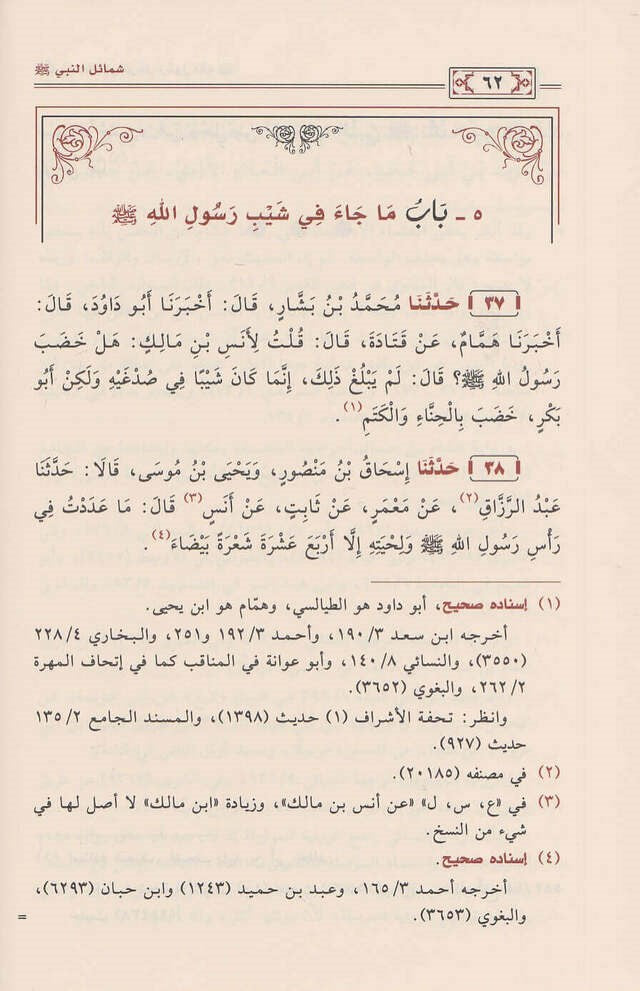 شمائل النبي ﷺ
٦٢
٥ - بَابُ مَا جَاءَ فِي شَيْبِ رَسُولِ اللهِ ﷺ
٣٧ حَدَّثَنَا مُحَمَّدُ بْنُ بَشَّارٍ، قَالَ: أَخْبَرَنَا أَبُو دَاوُدَ، قَالَ:
أَخْبَرَنَا هَمَّامٌ، عَنْ قَتَادَةَ، قَالَ: قُلْتُ لِأَنَسِ بْنِ مَالِكٍ: هَلْ خَضَبَ
رَسُولُ اللهِ ﷺ؟ قَالَ: لَمْ يَبْلُغْ ذَلِكَ، إِنَّمَا كَانَ شَيْبًا فِي صُدْغَيْهِ وَلَكِنْ أَبُو
بَكْرٍ، خَضَبَ بِالْحِنَّاءِ وَالْكَتَمِ(١).
٣٨ حَدَّثَنَا إِسْحَاقُ بْنُ مَنْصُورٍ، وَيَحْيَى بْنُ مُوسَى، قَالَا: حَدَّثَنَا
عَبْدُ الرَّزَّاقِ(٢)، عَنْ مَعْمَرٍ، عَنْ ثَابِتٍ، عَنْ أَنَسٍ(٣) قَالَ: مَا عَدَدْتُ فِي
رَأْسِ رَسُولِ اللهِ ﷺ وَلِحْيَتِهِ إِلَّا أَرْبَعَ عَشْرَةَ شَعْرَةً بَيْضَاءَ(٤).
(١) إسناده صحيح، أبو داود هو الطيالسي، وهمّام هو ابن يحيى.
أخرجه ابن سعد ٣/ ١٩٠، وأحمد ٣/ ١٩٢ و٢٥١، والبخاري ٤/ ٢٢٨
(٣٥٥٠)، والنسائي ٨/ ١٤٠، وأبو عوانة في المناقب كما في إتحاف المهرة
٢/ ٢٦٢، والبغوي (٣٦٥٢).
وانظر: تحفة الأشراف (١) حديث (١٣٩٨)، والمسند الجامع ٢/ ١٣٥
حديث (٩٢٧).
(٢) في مصنفه (٢٠١٨٥).
(٣) في «ع، س، ل» «عن أنس بن مالك»، وزيادة «ابن مالك» لا أصل لها في
شيء من النسخ.
(٤) إسناده صحيح.
أخرجه أحمد ٣/ ١٦٥، وعبد بن حميد (١٢٤٣) وابن حبان (٦٢٩٣)،
والبغوي (٣٦٥٣).
=